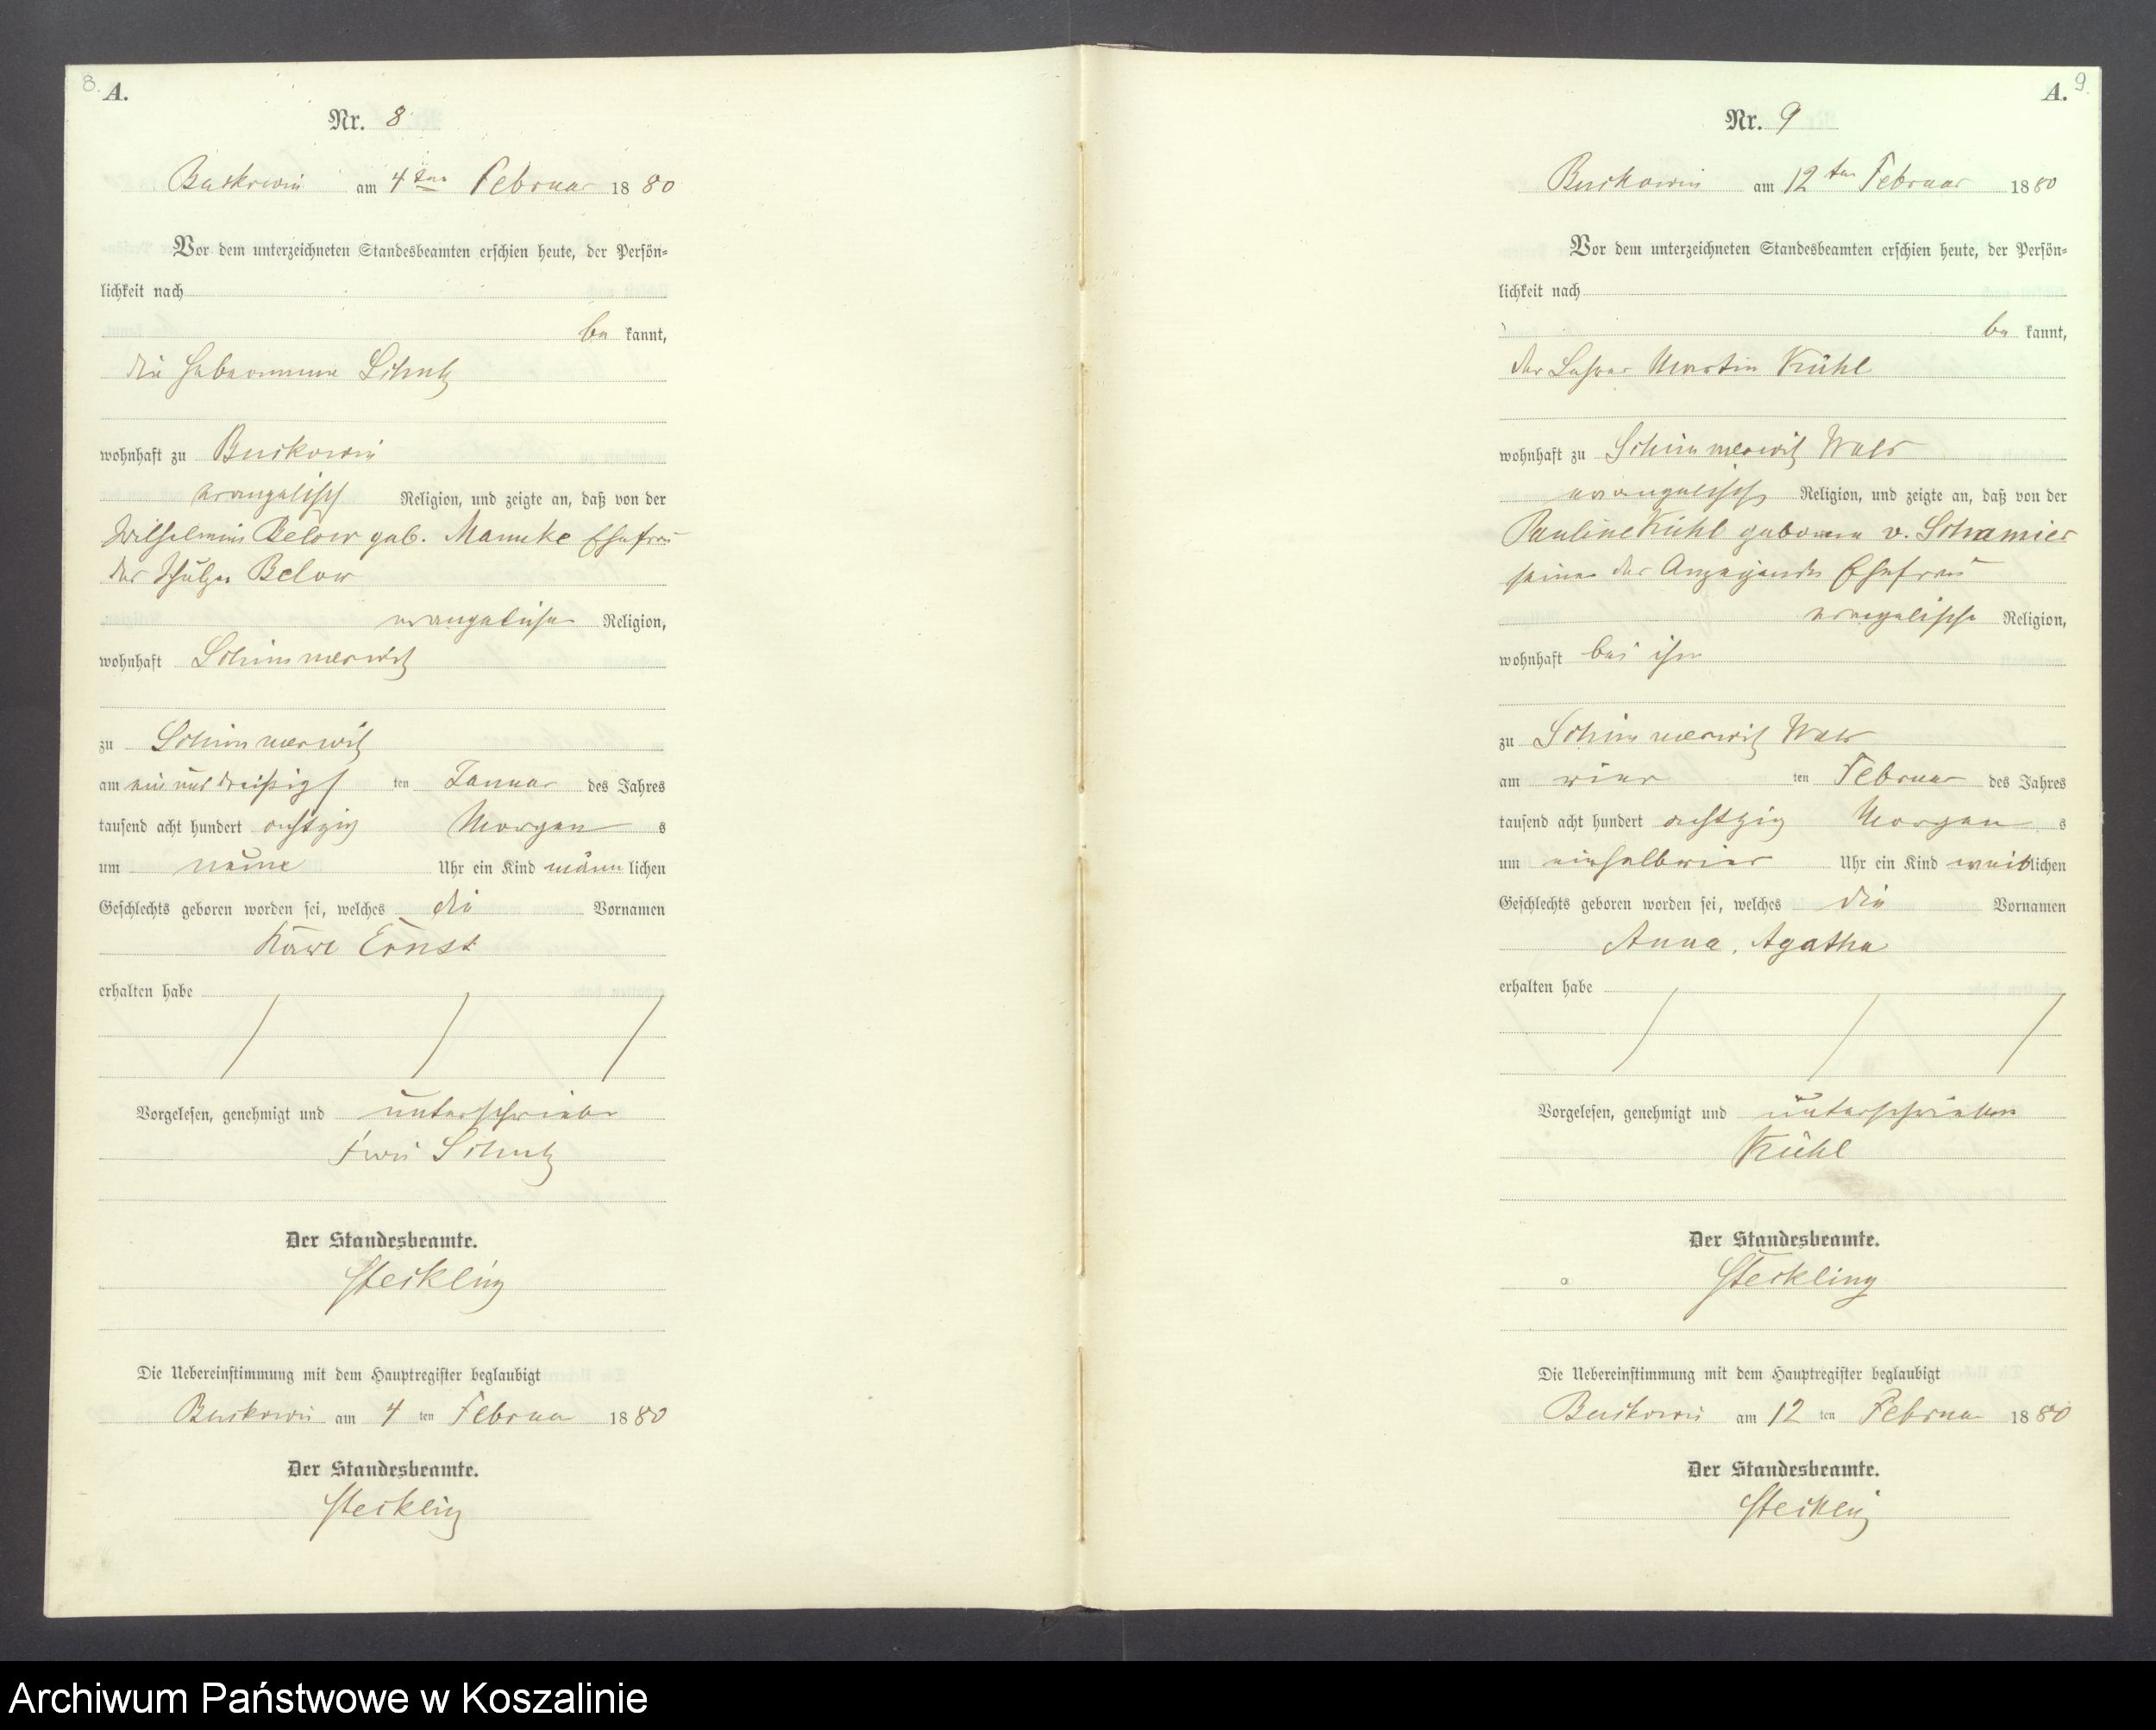 8. A.
Nr. 8
Buckowin am 4ten Februar 1880
Vor dem unterzeichneten Standesbeamten erschien heute, der Persön-
lichkeit nach
be kannt,
die Hebeamme Schulz
wohnhaft zu Buckowin
evangelisch Religion, und zeigte an, daß von der
Wilhelmine Below geb. Mannke Ehefrau
des Schulzen Below
evangelischer Religion,
wohnhaft Schimmerwitz
zu Schimmerwitz
am ein und dreißigs ten Januar des Jahres
tausend acht hundert achtzig Morgen s
um neun Uhr ein Kind männ lichen
Geschlechts geboren worden sei, welches die Vornamen
Ernst
erhalten habe
Vorgelesen, genehmigt und unterschrieben
Frau Schulz
Der Standesbeamte.
Steckling
Die Uebereinstimmung mit dem Hauptregister beglaubigt
Buckowin am 4 ten Februar 1880
Der Standesbeamte.
Steckling
A. 9.
Nr. 9
Buckowin am 12ten Februar 1880
Vor dem unterzeichneten Standesbeamten erschien heute, der Persön-
lichkeit nach
be kannt,
der Lehrer Martin Kühl
wohnhaft zu Schimmerwitz Wald
evangelisch Religion, und zeigte an, daß von der
Pauline Kühl geborene v.
seiner des Anzeigenden Ehefrau
evangelische Religion,
wohnhaft bei ihm
zu Schimmerwitz Wald
am vier ten Februar des Jahres
tausend acht hundert achtzig Morgen s
um einhalbvier Uhr ein Kind weib lichen
Geschlechts geboren worden sei, welches die Vornamen
Anna, Agatha
erhalten habe
Vorgelesen, genehmigt und unterschrieben
Kühl
Der Standesbeamte.
Steckling
Die Uebereinstimmung mit dem Hauptregister beglaubigt
Buckowin am 12 ten Februar 1880
Der Standesbeamte.
Steckling
Archiwum Państwowe w Koszalinie